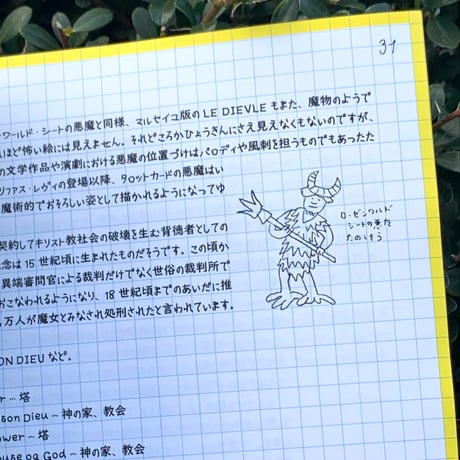 31
ーワールド・シートの悪魔と同様、マルセイユ版の LE DIEVLE もまた、魔物のようで
ほど怖い絵には見えません。それどころかひょうきんにさえ見えなくもないのですが、
の文学作品や演劇における悪魔の位置づけはパロディや風刺を担うものでもあったた
リファス・レヴィの登場以降、タロットカードの悪魔はい
魔術的でおそろしい姿として描かれるようになってゆ
契約してキリスト教社会の破壊を生む背徳者としての
念は 15 世紀頃に生まれたものだそうです。この頃か
異端審問官による裁判だけでなく世俗の裁判所で
おこなわれるようになり、18 世紀頃までのあいだに推
万人が魔女とみなされ処刑されたと言われています。
ローゼンワルド
シートの悪魔
たのしそう
ON DIEU など。
r … 塔
son Dieu … 神の家、教会
ower … 塔
ouse og God … 神の家、教会